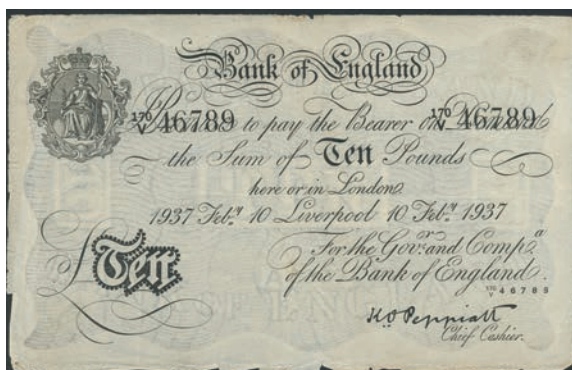 Bank of England
170/V 46789 170/V 46789
to pay the Bearer on Demand
the Sum of Ten Pounds
here or in London
1937 Feby. 10 Liverpool 10 Feby. 1937
For the Govr. and Compa.
of the Bank of England.
170/V 46789
£Ten
K O Peppiatt
Chief Cashier.